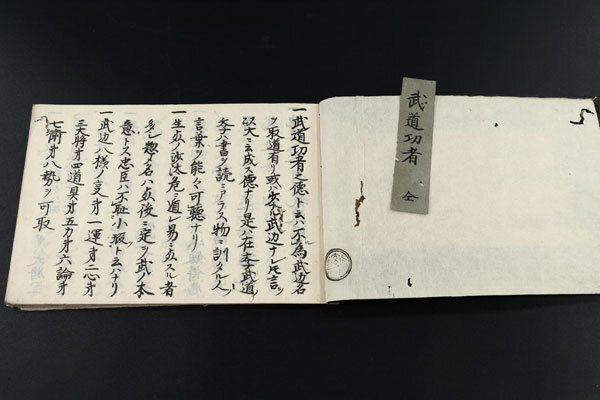 武道功者 全
一武道功者之徳ト云ハ不為武辺名
ヲ取道有リ或ハ安キ武辺ナレ𪜈言ヲ
以大ニ成ス徳ナリ是ハ在斈武道
斈ハ書ヲ読ニアラス物ニ訓タル人ノ
言葉ヲ能々可聴ナリ
一生死ノ沙汰危ニ遁レ易ニ死スル者
多シ惣〆名ハ死後ニ定ツ武ノ本
意トス忠臣ハ不恥小瑕ト云ハナリ
一武辺八様ノ変才一運才二心才
三大将才四道具才五力才六論才
七衛才八勢ヲ可取